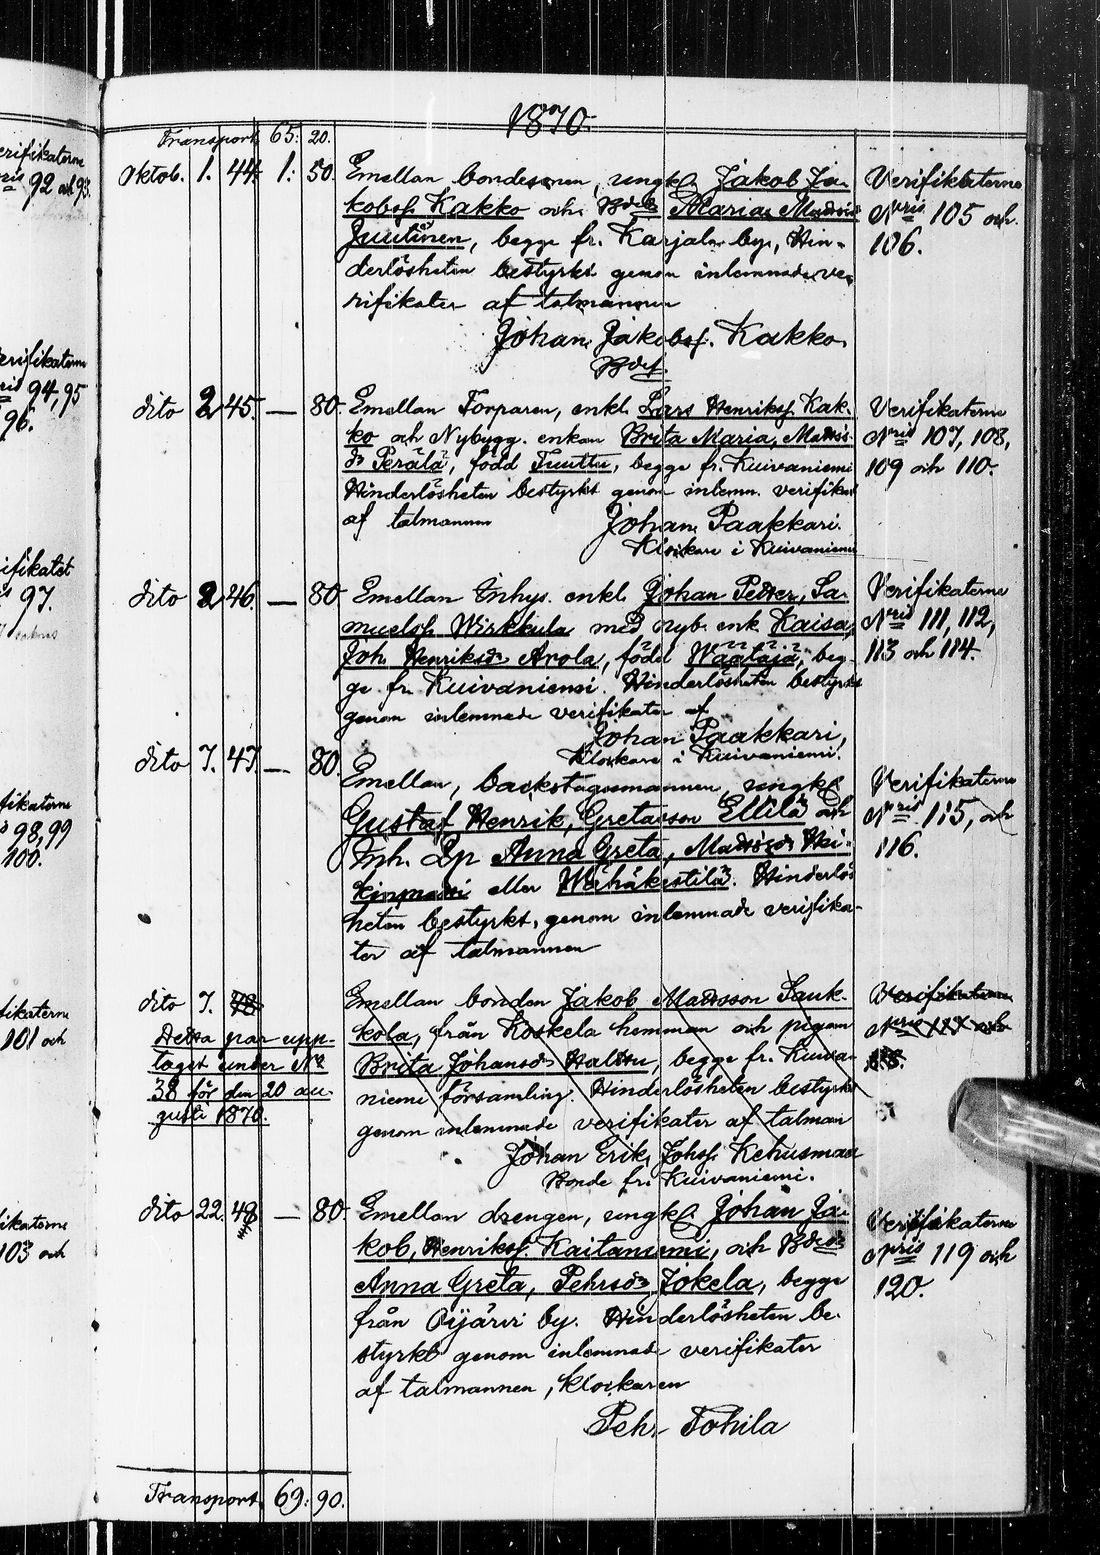 1870.
Transport. 65: 20.
Oktob. 1. 44. 1: 50. Emellan bondesonen, ungk. Jakob Ja-
kobsf. Kakko och Bdr Maria Madsd
Juutinen, begge fr. Karjala by, Hin-
derlösheten bestyrkt genom inlemnade ve-
rifikater af talmannen
Johan Jakobsf. Kakko.
Bdsf.
Verifikaterne
Nris 105 och
106.
dito 2. 45. — 80. Emellan Torparen, enkl. Lars Henriksf. Kak-
ko och Nybygg. enkan Brita Maria, Mads-
dr Perälä, född Tuuttu, begge fr. Kuivaniemi
Hinderlösheten bestyrkt genom inlemn. verifikat
af talmannen
Johan Paakkari.
Klockare i Kuivaniemi
Verifikaterne
Nris 107, 108,
109 och 110.
dito 2. 46. — 80. Emellan Inhys. enkl. Johan Petter, Sa-
muelsf. Wirkkula med nyb. enk. Kaisa,
Joh. Henriksdr Arola, född Waataja, beg-
ge fr. Kuivaniemi. Hinderlösheten bestyrkt
genom inlemnade verifikater af
Johan Paakkari,
Klockare i Kuivaniemi.
Verifikaterne
Nris 111, 112,
113 och 114.
dito 7. 47. — 80. Emellan, backstugumannen, ungkl
Gustaf Henrik, Gretasson Ellilä och
Inh. Anna Greta, Madsdr Hei-
eller Wehäkestilä. Hinderlös
heten bestyrkt, genom inlemnade verifika-
ter af talmannen
Verifikaterne
Nris 115, och
116.
dito 7. 48. Emellan bonden Jakob Madsson Sauk-
kola, från Koskela hemman och pigan
Brita Johansdr Halttu, begge fr. Kuiva-
niemi församling. Hinderlösheten bestyrkt
genom inlemnade verifikater af talman
Johan Erik Johsf. Kehusmaa
Bonde fr. Kuivaniemi.
Detta par upp-
taget under No
38 för den 20 au-
gusti 1870.
Verifikaterne
Nris och
dito 22. 48 — 80. Emellan drengen, ungkl Johan Ja-
kob, Henriksf. Kaitaniemi, och Bdr
Anna Greta, Pehrsdr Jokela, begge
från Oijärvi by. Hinderlösheten be-
styrkt genom inlemnade verifikater
af talmannen, klockaren
Pehr Tohila
Verifikaterne
Nris 119 och
120.
Transport. 69: 90.